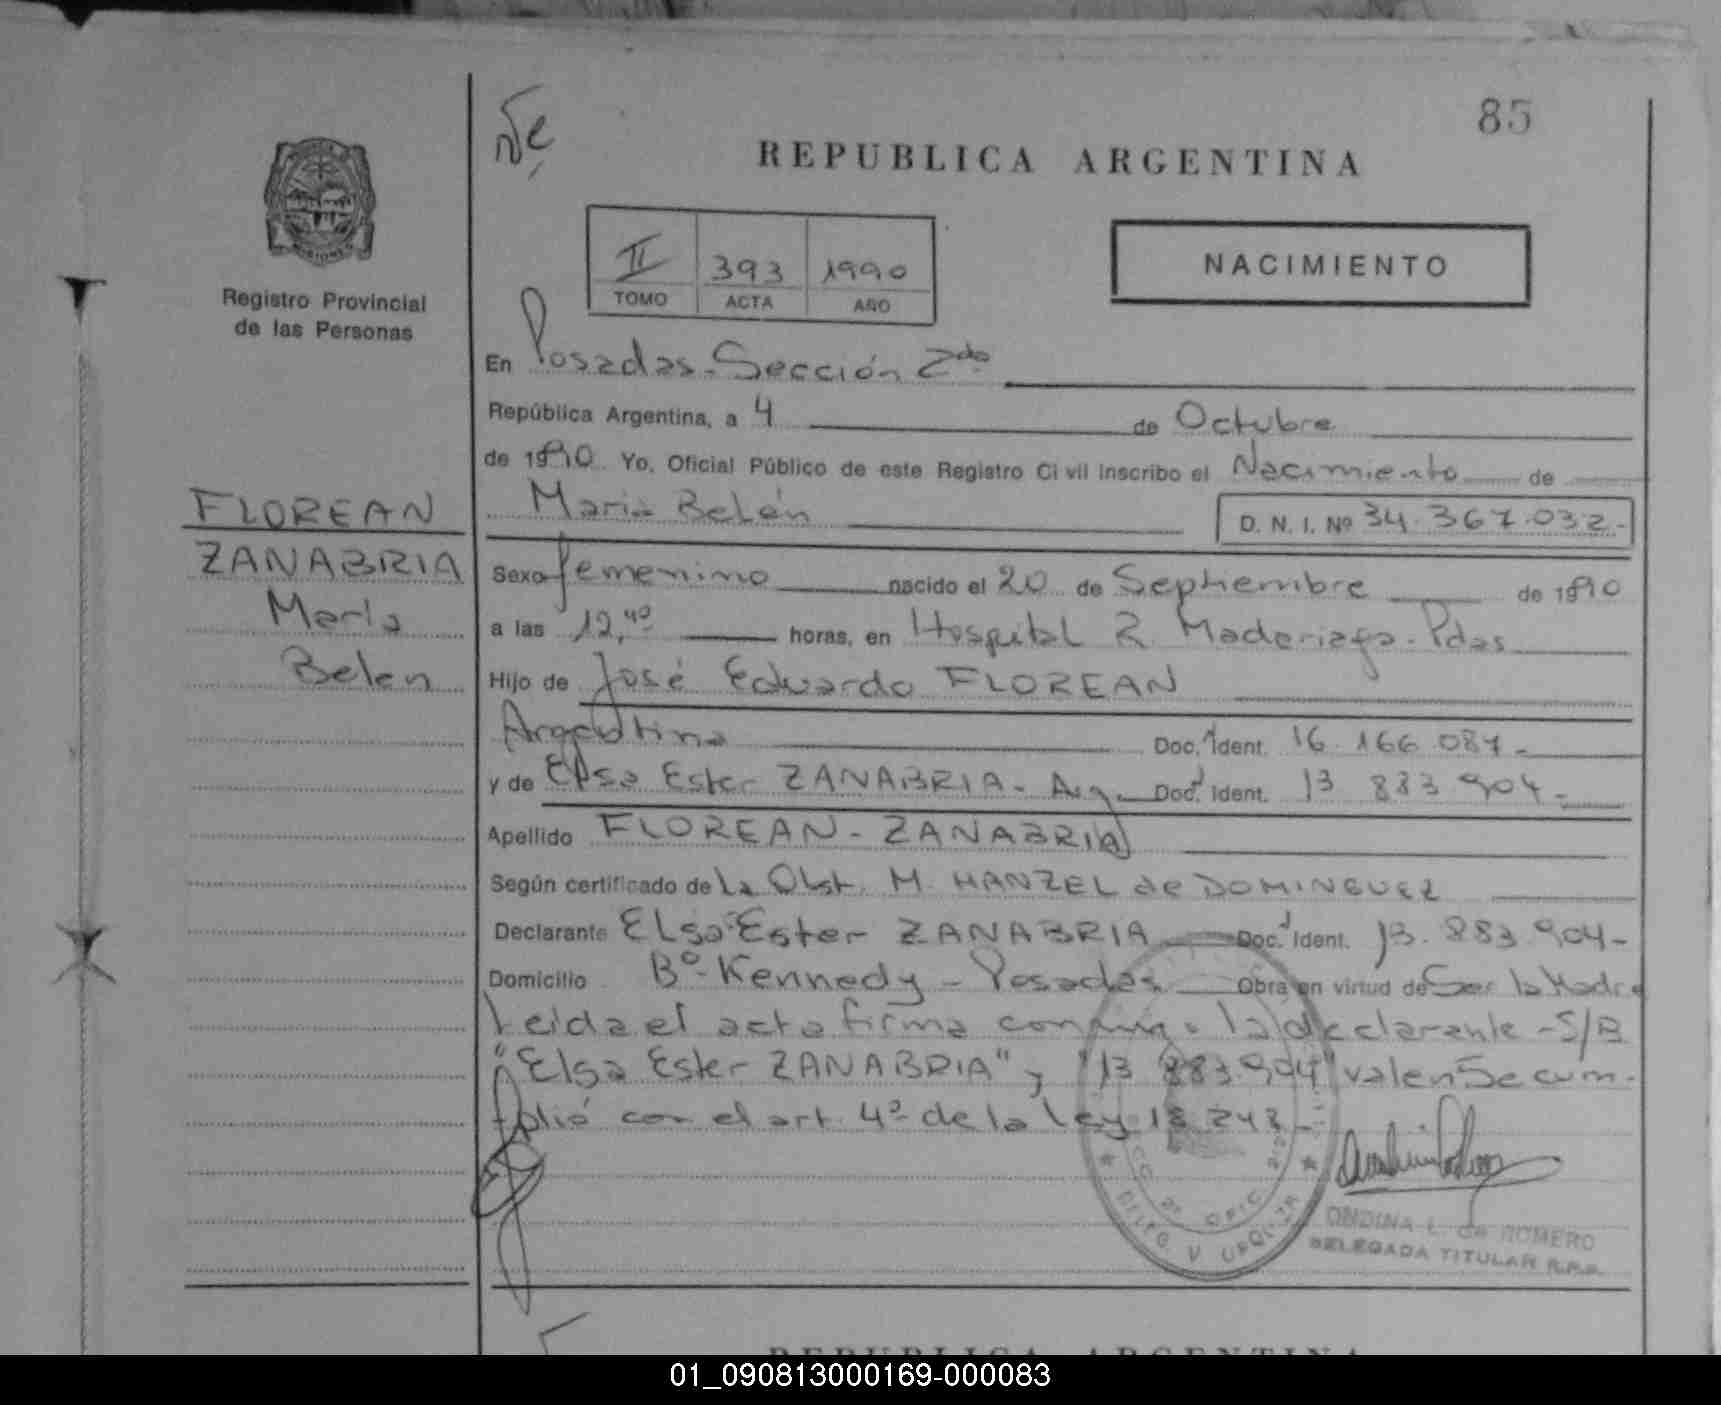 85
REPUBLICA ARGENTINA
MISIONES
Registro Provincial
de las Personas
II 393 1990
TOMO ACTA AÑO
NACIMIENTO
En Posadas - Sección 2da
República Argentina, a 4 de Octubre
de 1990 Yo, Oficial Público de este Registro Civil inscribo el Nacimiento de
María Belén D. N. I. Nº 34.367.032-
FLOREAN
ZANABRIA
María
Belen
Sexo femenino nacido el 20 de Septiembre de 1990
a las 12,40 horas, en Hospital R. Madariaga - Pdas
Hijo de José Eduardo FLOREAN
Argentino Doc. Ident. 16.166.087-
y de Elsa Ester ZANABRIA - Arg. Doc. Ident. 13 883 904-
Apellido FLOREAN - ZANABRIA
Según certificado de La Obst. M. HANZEL de DOMINGUEZ
Declarante Elsa Ester ZANABRIA Doc. Ident. 13.883.904-
Domicilio Bº Kennedy - Posadas Obra en virtud de Ser la Madre
Leida el acta firma conmigo la declarante - S/B
"Elsa Ester ZANABRIA" y "13 883.904" valen Se cum-
plió con el art. 4º de la Ley 18 248-
DELEG. V. URQUIZA
ONDINA L. de ROMERO
DELEGADA TITULAR R.P.P.
REPUBLICA ARGENTINA
01_090813000169-000083